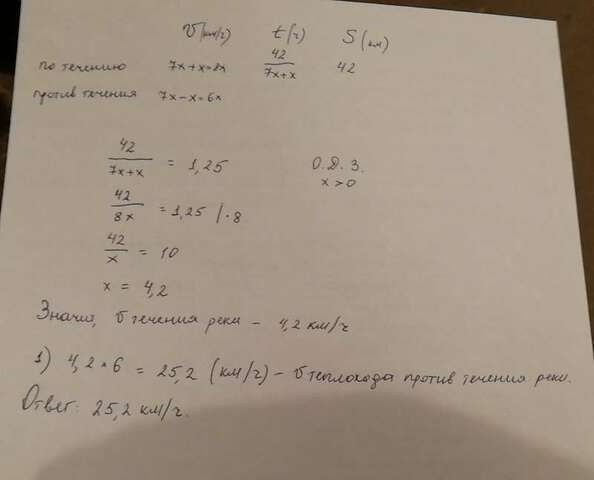 v(км/ч) t(ч) S(км)
по течению 7x+x=8x 42/7x+x 42
против течения 7x-x=6x
42/7x+x = 1,25 О.Д.З.
x>0
42/8x = 1,25 |·8
42/x = 10
x = 4,2
Значит, v течения реки - 4,2 км/ч
1) 4,2 · 6 = 25,2 (км/ч) - v теплохода против течения реки.
Ответ: 25,2 км/ч.